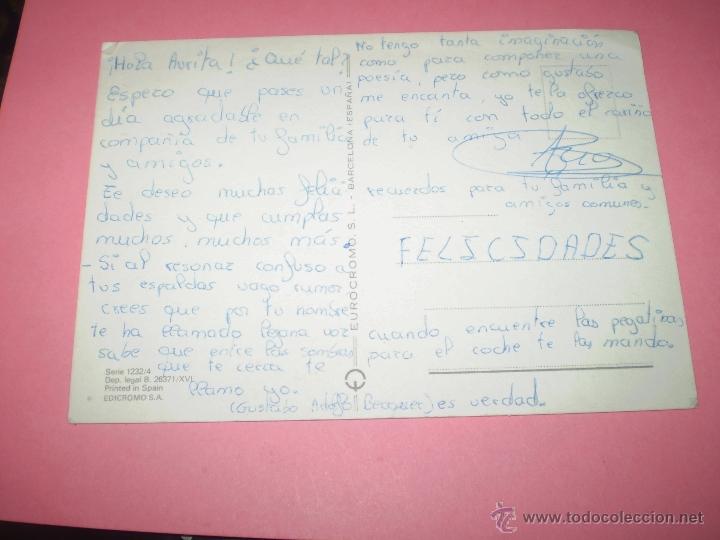 ¡Hola Aurita! ¿Qué tal?
Espero que pases un
día agradable en
compañía de tu familia
y amigos.
Te deseo muchas felici
dades y que cumplas
muchos, muchos más.
- Si al resonar confuso a
tus espaldas vago rumor
crees que por tu nombre
te ha llamado lejana voz
sabe que entre las sombras
que te cerca te
llamo yo.
(Gustabo Adolfo Becquer) es verdad.
No tengo tanta imaginación
como para componer una
poesía, pero como gustabo
me encanta, yo te la ofrezco
para tí con todo el cariño
de tu amiga
recuerdos para tu familia y
amigos comunes.
FELICIDADES
cuando encuentre las pegatinas
para el coche te las mando.
EUROCROMO, S. L. - BARCELONA (ESPAÑA)
Serie 1232/4
Dep. legal B. 26371/XVI
Printed in Spain
EDICROMO S.A.
www.todocoleccion.net